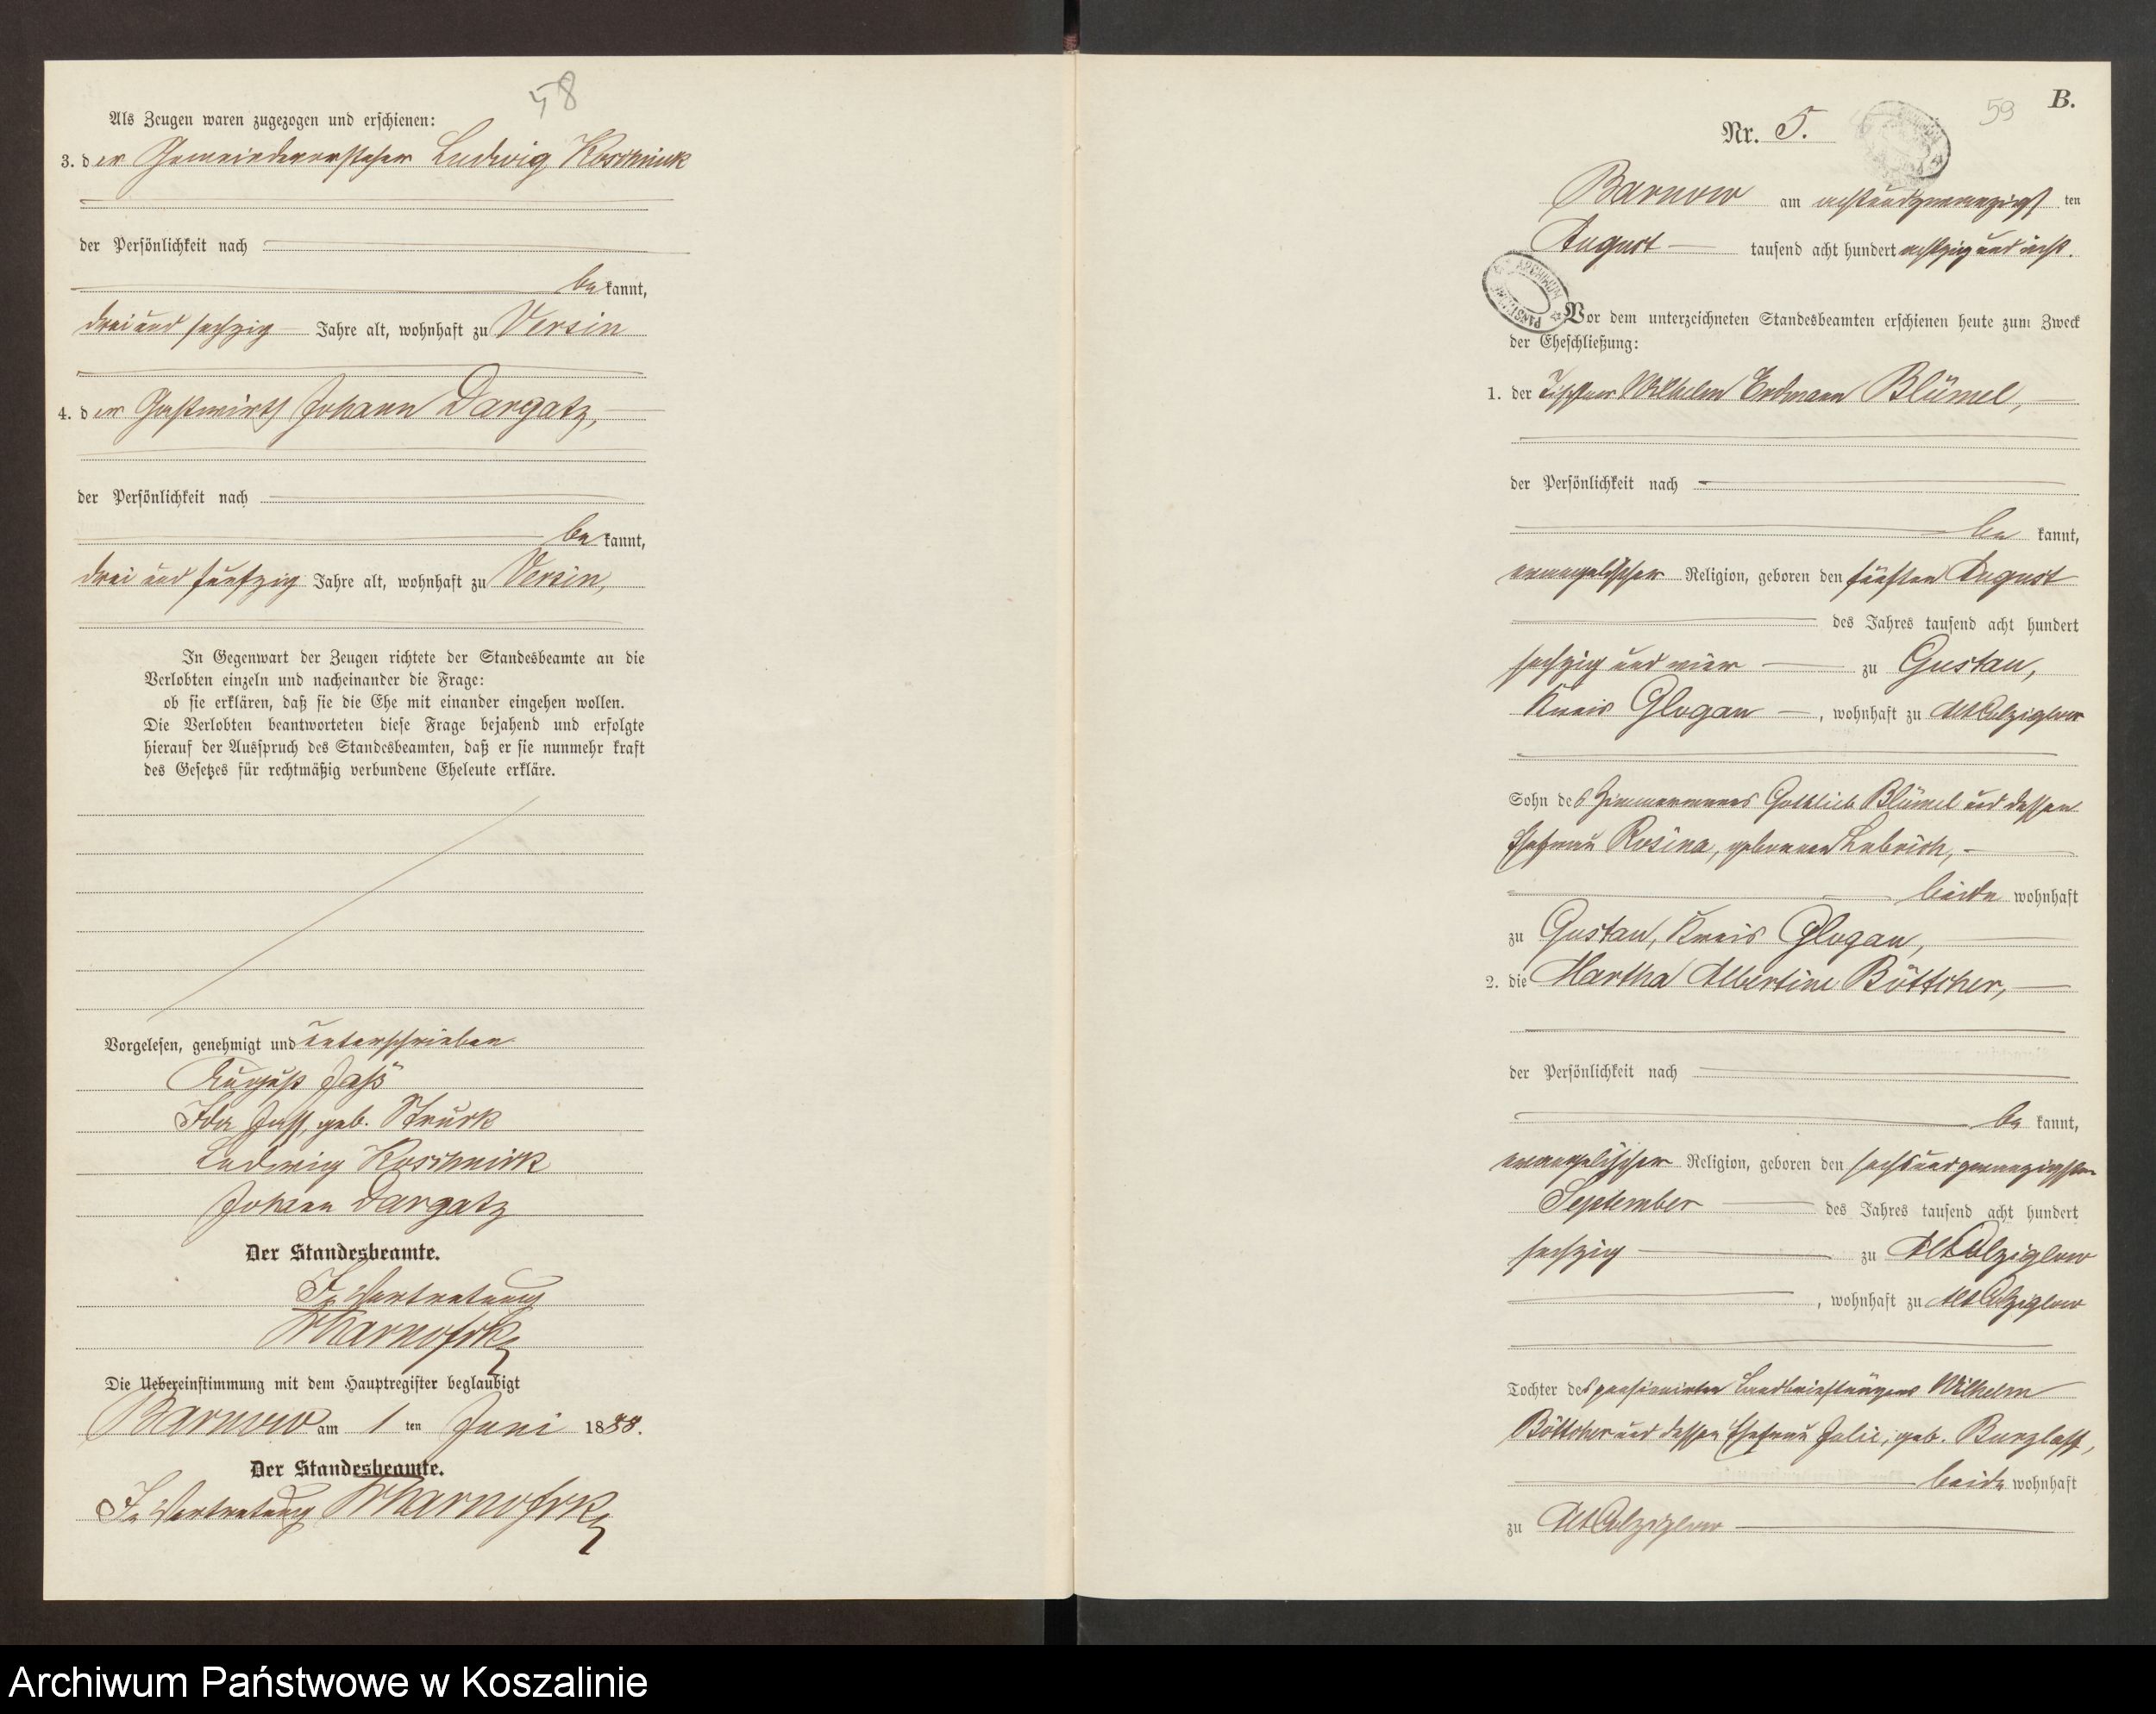 58
Als Zeugen waren zugezogen und erschienen:
3. der Gemeindevorsteher Ludwig Koschnick
der Persönlichkeit nach
bekannt,
drei und sechzig Jahre alt, wohnhaft zu Versin
4. der Gastwirth Johann Dargatz,
der Persönlichkeit nach
bekannt,
drei und fünfzig Jahre alt, wohnhaft zu Versin,
In Gegenwart der Zeugen richtete der Standesbeamte an die
Verlobten einzeln und nacheinander die Frage:
ob sie erklären, daß sie die Ehe mit einander eingehen wollen.
Die Verlobten beantworteten diese Frage bejahend und erfolgte
hierauf der Ausspruch des Standesbeamten, daß er sie nunmehr kraft
des Gesetzes für rechtmäßig verbundene Eheleute erkläre.
Vorgelesen, genehmigt und unterschrieben
August Jaß
Ida Jass, geb. Struck
Ludwig Koschnick
Johann Dargatz
Der Standesbeamte.
In Vertretung
Die Uebereinstimmung mit dem Hauptregister beglaubigt
Barnow am 1 ten Juni 1888.
Der Standesbeamte.
In Vertretung
59
B.
Nr. 5.
Barnow am achtundzwanzigst ten
August tausend acht hundert achtzig und acht.
ARCHIWUM PAŃSTWOWE
Vor dem unterzeichneten Standesbeamten erschienen heute zum Zweck
der Eheschließung:
1. der Tischler Wilhelm Erdmann Blümel,
der Persönlichkeit nach
be kannt,
evangelischer Religion, geboren den fünften August
des Jahres tausend acht hundert
sechzig und vier zu Gustau,
Kreis Glogau, wohnhaft zu Alt Colziglow
Sohn des Zimmermanns Gottlieb Blümel und dessen
Ehefrau Rosina, geborenen
beide wohnhaft
zu Gustau, Kreis Glogau,
2. die Martha Albertine Böttcher,
der Persönlichkeit nach
be kannt,
evangelischer Religion, geboren den sechsundzwanzigsten
September des Jahres tausend acht hundert
sechzig zu Alt Colziglow
, wohnhaft zu Alt Colziglow
Tochter des pensionirten Landbriefträgers Wilhelm
Böttcher und dessen Ehefrau Julie, geb. Burzlaff,
beide wohnhaft
zu Alt Colziglow
Archiwum Państwowe w Koszalinie